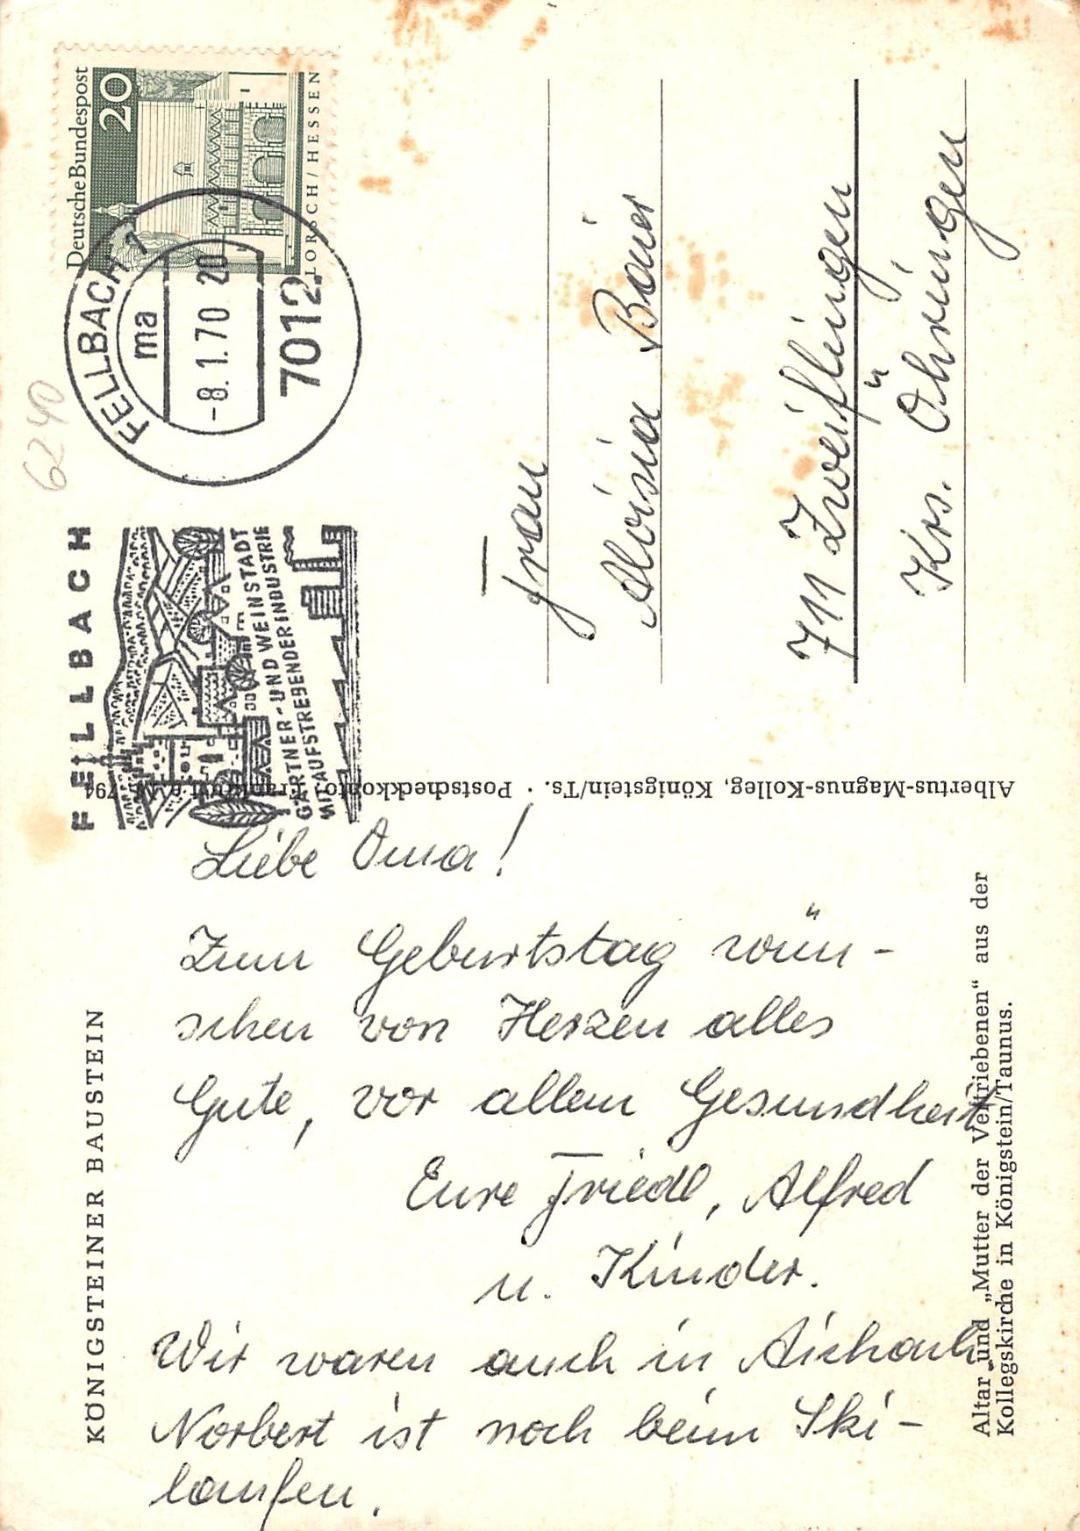 Deutsche Bundespost
20
LORSCH / HESSEN
FELLBACH 1
ma
-8.1.70 20
7012
6240
FELLBACH
GÄRTNER- UND WEINSTADT
MIT AUFSTREBENDER INDUSTRIE
Frau
Aloisia Baier
711 Zweiflingen
Krs. Öhringen
Albertus-Magnus-Kolleg, Königstein/Ts. · Postscheckkonto Frankfurt a. M.
Liebe Oma!
Zum Geburtstag wün-
schen von Herzen alles
Gute, vor allem Gesundheit
Eure Friedl, Alfred
u. Kinder.
Wir waren auch in Aichach,
Norbert ist noch beim Ski-
laufen.
KÖNIGSTEINER BAUSTEIN
Altar und „Mutter der Vertriebenen“ aus der
Kollegskirche in Königstein/Taunus.